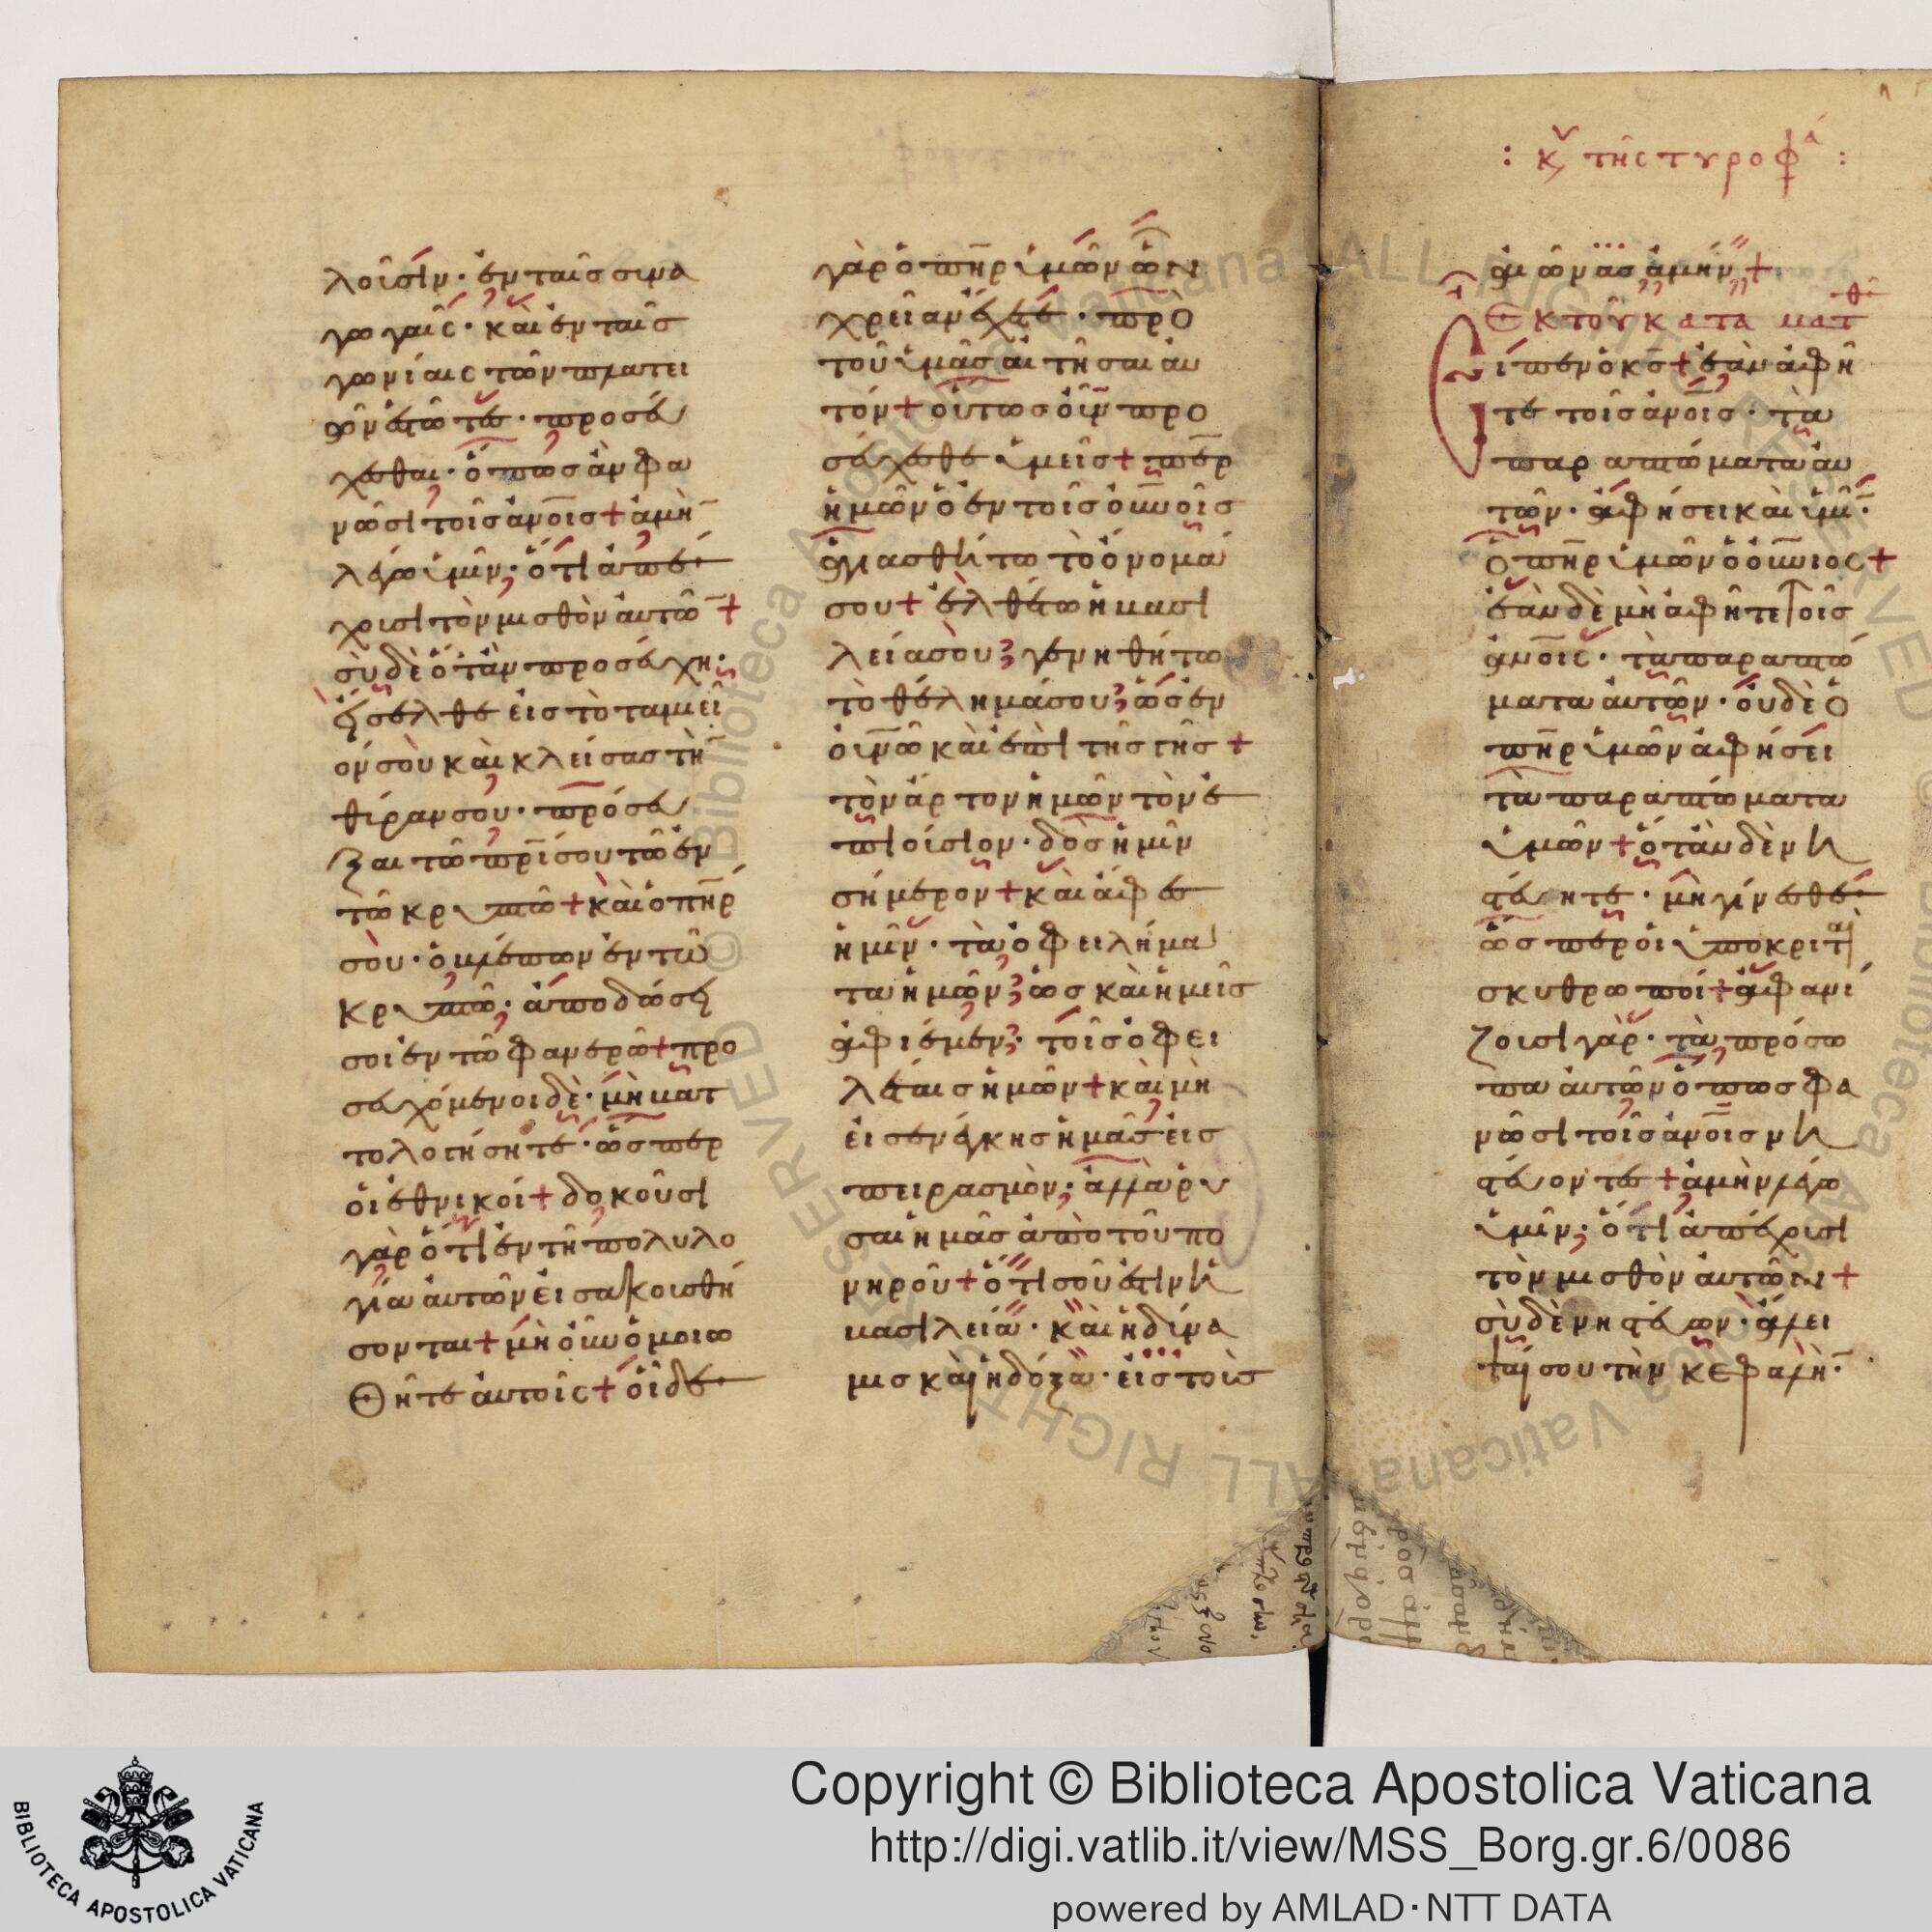 λοῦσιν· ἐν ταῖς συνα
γωγαῖς· καὶ ἐν ταῖς
γωνίαις τῶν πλατει
ῶν ἑστῶτε· προσεύ
χεσθαι· ὅπως ἂν φα
νῶσι τοῖς ἀν̅οι̅ς + ἀμὴ̅
λέγω ὑμῖν· ὅτι ἀπέ
χουσι τὸν μισθὸν αὐτῶ̅ +
σὺ δὲ ὅταν προσεύχη·
εἴσελθε εἰς τὸ ταμιεῖ
ον σου καὶ κλείσας τὴ̅
θύραν σου· πρόσευ
ξαι τῶ πρ̅ί σου τῶ ἐν
τῶ κρυπτῶ + καὶ ὁ πη̅ρ
σου· ὁ βλέπων ἐν τῶ
κρυπτῶ· ἀποδώσει
σοι ἐν τῶ φανερῶ + προ
σευχόμενοι δὲ· μὴ βατ
τολογήσητε· ὥσπερ
οἱ ἐθνικοί + δοκοῦσι
γὰρ ὅτι ἐν τῆ πολυλο
γία αὐτῶν εἰσακουσθή
σονται + μὴ οὖν ὁμοιω
θῆτε αὐτοῖς + οἶδε
γὰρ ὁ πη̅ρ ὑμῶν ὧν
χρείαν ἔχετε· πρὸ
τοῦ ὑμᾶς αἰτῆσαι αὐ
τόν + οὕτως οὖν προ
σεύχεσθε ὑμεῖς + πε̅ρ
ἡμῶν ὁ ἐν τοῖς οὐν̅οι̅ς
ἁγιασθήτω τὸ ὄνομά
σου + ἐλθέτω ἡ βασι
λεία σου· γενηθήτω
τὸ θέλημά σου· ὡς ἐν
οὐν̅ῶ καὶ ἐπὶ τῆς γῆς +
τὸν ἄρτον ἡμῶν τὸν ἐ
πιούσιον· δὸς ἡμῖν
σήμερον + καὶ ἄφες
ἡμῖν· τὰ ὀφειλήμα
τα ἡμῶν· ὡς καὶ ἡμεῖς
ἀφίεμεν· τοῖς ὀφει
λέταις ἡμῶν + καὶ μὴ
εἰσενέγκης ἡμᾶς εἰς
πειρασμόν· ἀλλὰ ῥῦ
σαι ἡμᾶς ἀπὸ τοῦ πο
νηροῦ + ὅτι σοῦ ἐστιν ἡ
βασιλεία· καὶ ἡ δύνα
μις καὶ ἡ δόξα· εἰς τοὺς
: Κυ τῆς τυροφά :
αἰῶνας ἀμήν +
Ἐκ τοῦ κατὰ ματθ
Εἶπεν ὁ κς̅ + ἐὰν ἀφῆ
τε τοῖς ἀν̅οι̅ς· τὰ
παραπτώματα αὐ
τῶν· ἀφήσει καὶ ὑμῖ̅·
ὁ πη̅ρ ὑμῶν ὁ οὐ̅νιος +
ἐὰν δὲ μὴ ἀφῆτε τοῖς
ἀν̅οις· τὰ παραπτώ
ματα αὐτῶν· οὐδὲ ὁ
πη̅ρ ὑμῶν ἀφήσει
τὰ παραπτώματα
ὑμῶν + ὅταν δὲ νη
στεύητε· μὴ γίνεσθε
ὥσπερ οἱ ὑποκριταὶ
σκυθρωποί + ἀφανί
ζουσι γὰρ· τὰ πρόσω
πα αὐτῶν ὅπως φα
νῶσι τοῖς ἀν̅οι̅ς νη
στεύοντε + ἀμὴν λέγω
ὑμῖν· ὅτι ἀπέχουσι
τὸν μισθὸν αὐτῶν +
σὺ δὲ νηστεύων· ἄλει
ψαί σου τὴν κεφαλὴ̅·
Copyright © Biblioteca Apostolica Vaticana
http://digi.vatlib.it/view/MSS_Borg.gr.6/0086
powered by AMLAD·NTT DATA
BIBLIOTECA APOSTOLICA VATICANA